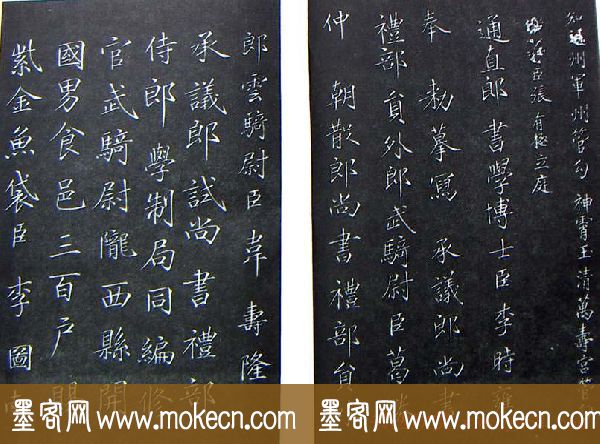 知 州軍州管勾神霄玉清萬壽宮
臣張有極立庭
通直郎書學博士臣李時雍
奉 敕摹寫 承議郎尚書
禮部員外郎武騎尉臣葛
仲 朝散郎尚書禮部員
郎雲騎尉臣韋 壽隆
承議郎試尚書禮部
侍郎學制局同編修
官武騎尉隴西縣開
國男食邑三百户
紫金魚袋臣李圖
墨客网 www.mokecn.com
墨客网 www.mokecn.com